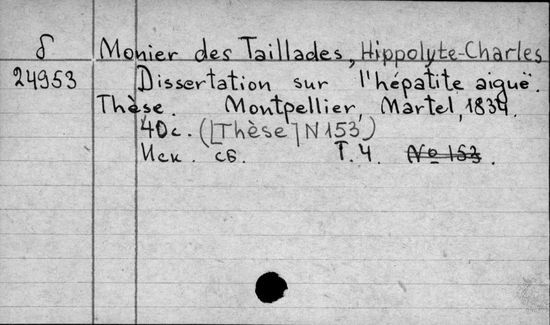 δ Monier des Taillades, Hippolyte-Charles
24953 Dissertation sur l'hépatite aiguë.
Thèse. Montpellier, Martel, 1834.
40c. ([Thèse] N 153)
Иск. сб. Т. 4. No 153.